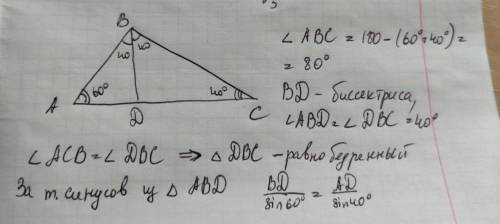 B
40 40
A 60° D 40° C
∠ ABC = 180 - (60°+40°) =
= 80°
BD - биссектриса,
∠ABD = ∠ DBC = 40°
∠ ACB = ∠ DBC ⇒ △ DBC - равнобедренный
За т. синусов из △ ABD BD/sin60° = AD/sin40°